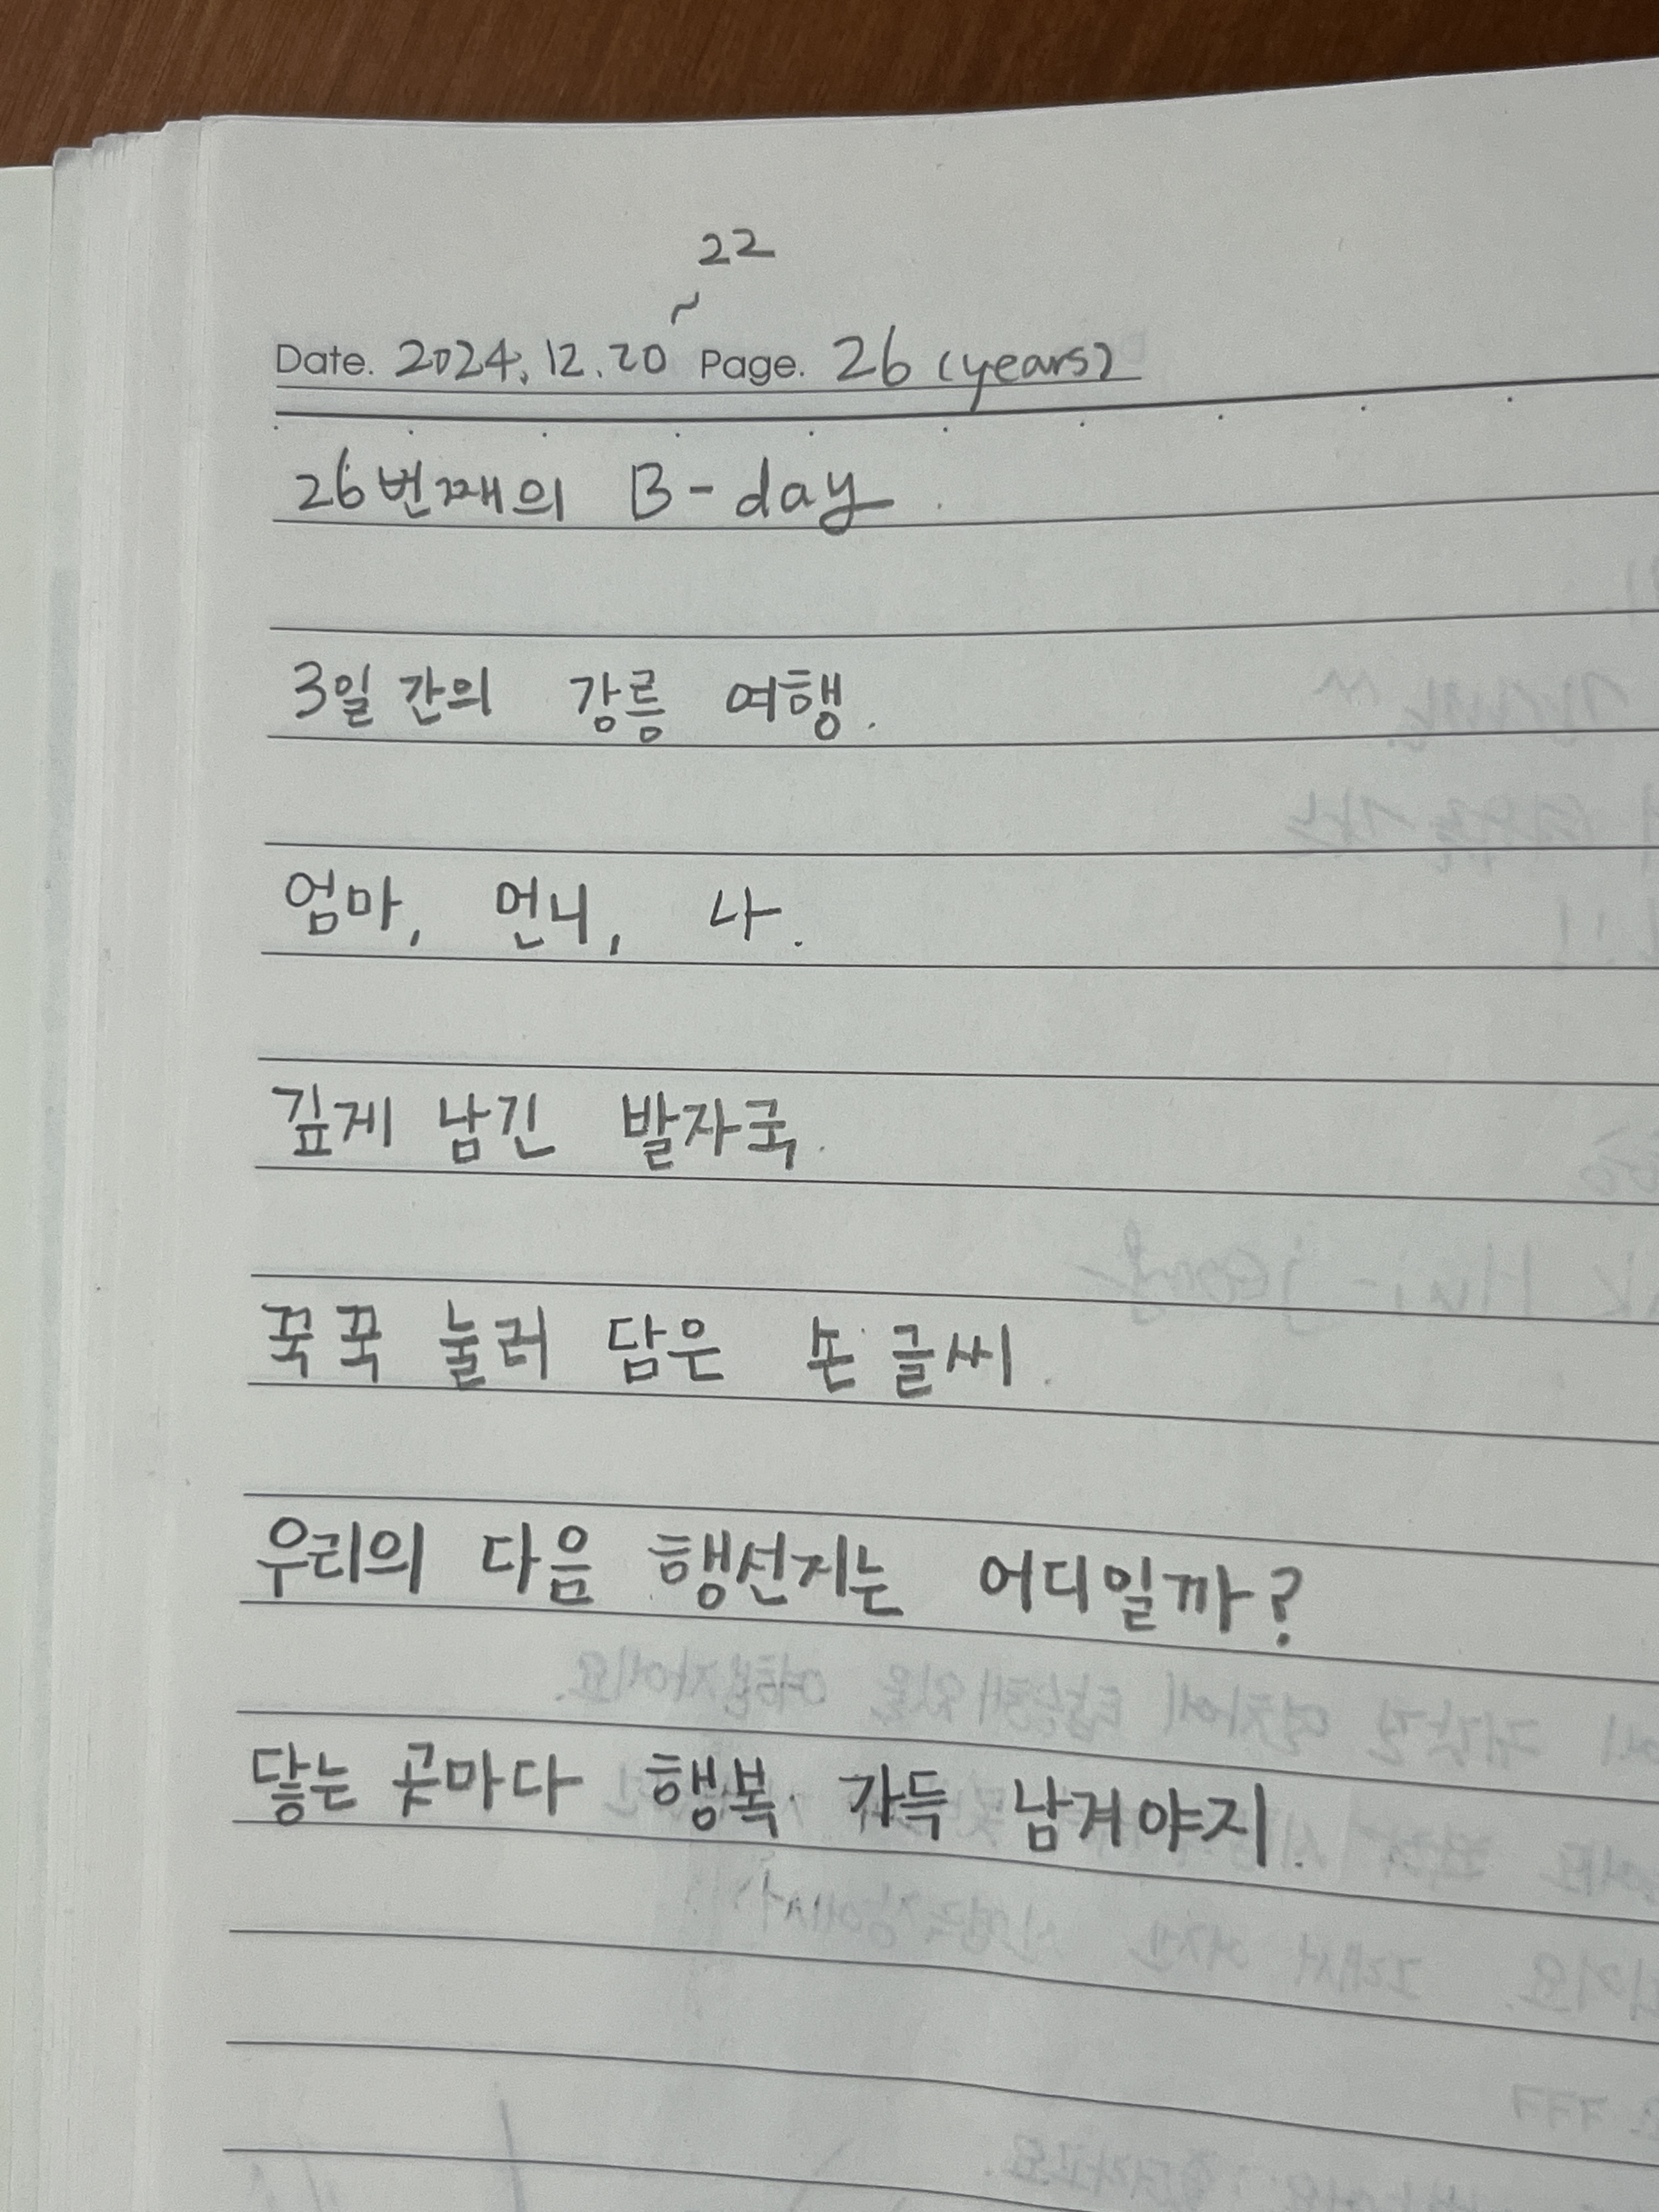 22
~
Date. 2024. 12. 20 Page. 26 (years)
26번째의 B-day.
3일 간의 강릉 여행.
엄마, 언니, 나.
깊게 남긴 발자국.
꾹꾹 눌러 담은 손글씨.
우리의 다음 행선지는 어디일까?
닿는 곳마다 행복 가득 남겨야지.